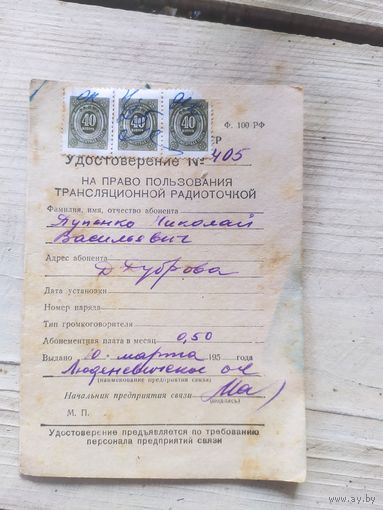 40 40 40
Ф. 100 РФ
Удостоверение № 405
НА ПРАВО ПОЛЬЗОВАНИЯ
ТРАНСЛЯЦИОННОЙ РАДИОТОЧКОЙ
Фамилия, имя, отчество абонента
Николай
Васильевич
Адрес абонента
Д Дуброва
Дата установки
Номер наряда
Тип громкоговорителя
Абонементная плата в месяц 0,50
Выдано 10. марта 195 года
Люденевичское о/с
(наименование предприятия связи)
Начальник предприятия связи
(подпись)
М. П.
Удостоверение предъявляется по требованию
персонала предприятий связи
www.ay.by